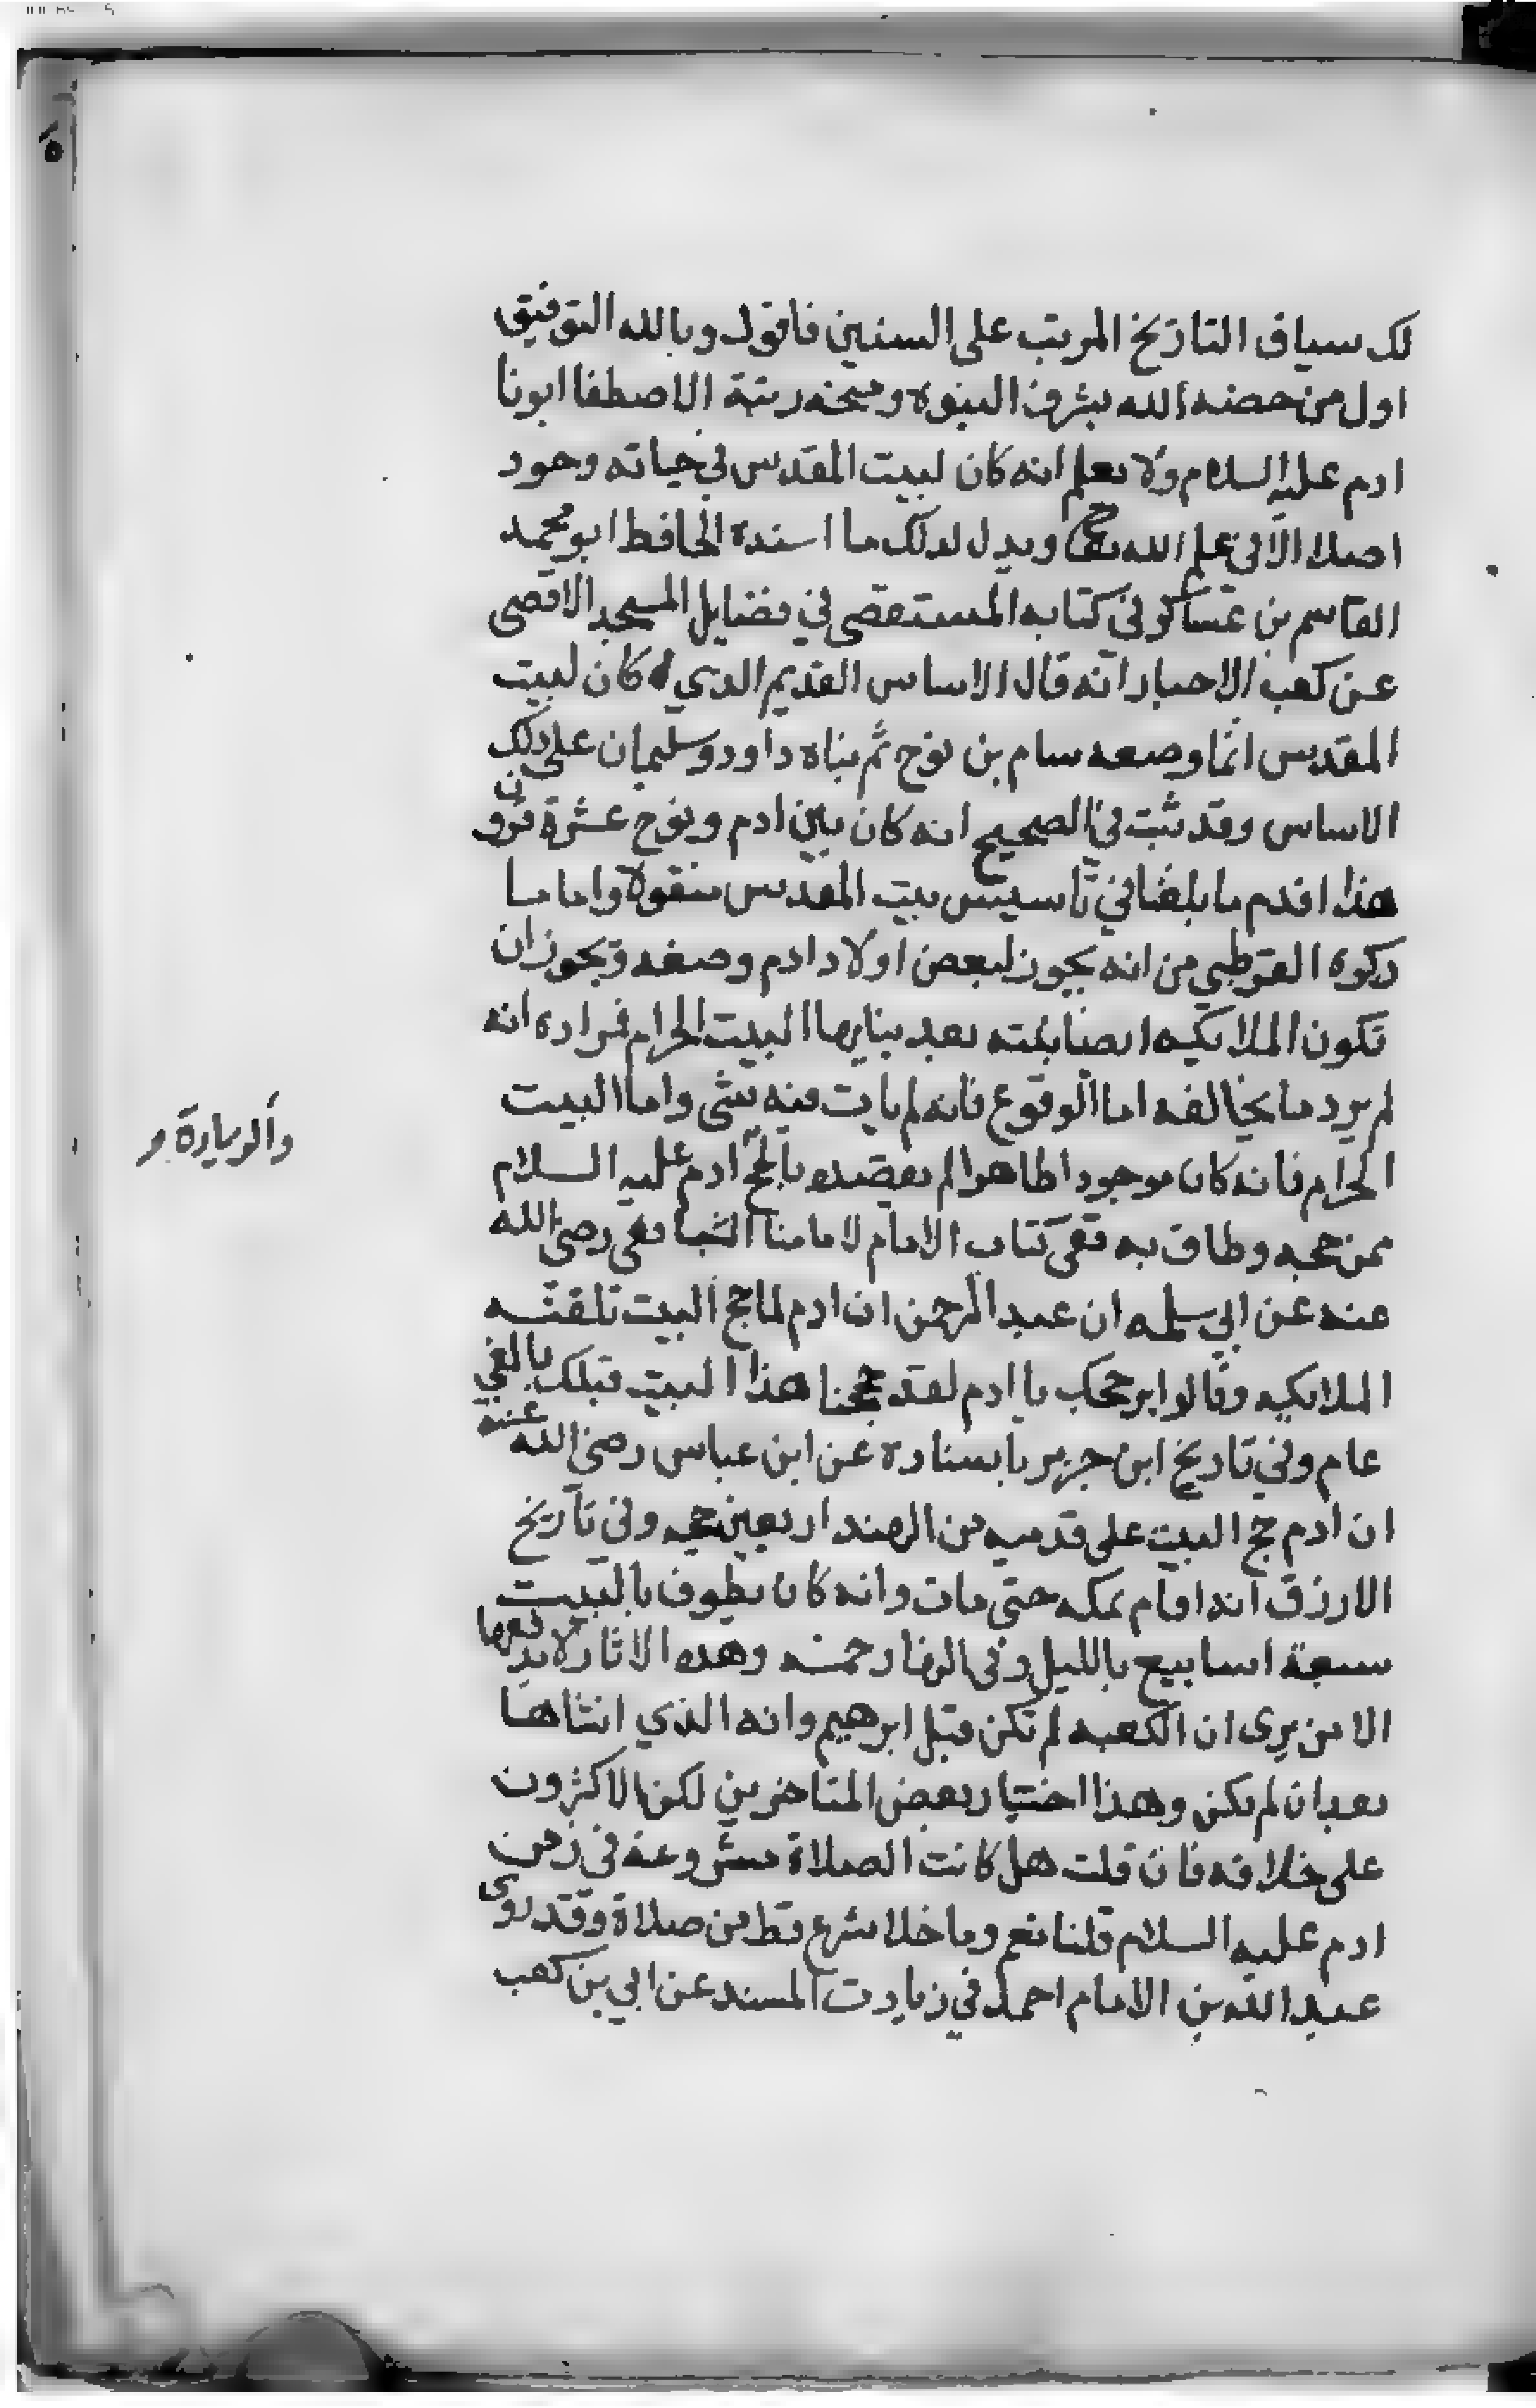 لك سياق التاريخ المرتب على السنين فاقول وبالله التوفيق
اول من خصه الله بشرف النبوه ومنحه رتبة الاصطفا ابونا
ادم عليه السلام ولا نعلم انه كان لبيت المقدس في حياته وجود
اصلا الا في علم الله تعالى ويدل لذلك ما اسنده الحافظ ابو محمد
القاسم بن عساكر في كتابه المستقصى في فضايل المسجد الاقصى
عن كعب الاحبار انه قال الاساس القديم الذي كان لبيت
المقدس انما وضعه سام بن نوح ثم بناه داود وسليمان على ذلك
الاساس وقد ثبت في الصحيح انه كان بين ادم ونوح عشرة قرون
هذا اقدم ما بلغنا في تأسيس بيت المقدس منقولا واما ما
ذكره القرطبي من انه يجوز لبعض اولاد ادم وضعه ويجوز ان
تكون الملايكه ايضا بنته بعد بنايها البيت الحرام فمراده انه
لم يرد ما يخالفه اما الوقوع فانه لم يات فيه بشى واما البيت
الحرام فانه كان موجودا ظاهرا لم يقصده بالحج ادم عليه السلام
والزيارة
ممن حجه وطاف به ففى كتاب الامام لامامنا الشافعى رضى الله
عنه عن ابي سلمه ان عبد الرحمن ان ادم لما حج البيت تلقته
الملايكه وقالوا بر حجك يا ادم لقد حججنا هذا البيت قبلك بالفي
عام وفي تاريخ ابن جرير باسناده عن ابن عباس رضى الله عنه
ان ادم حج البيت على قدميه من الهند اربعين حجه وفي تاريخ
الازرق انه اقام بمكه حتى مات وانه كان يطوف بالبيت
سبعة اسابيع بالليل وفى النهار خمسه وهذه الاثار لا يدفعها
الا من يرى ان الكعبه لم تكن قبل ابرهيم وانه الذي انشاها
بعد ان لم تكن وهذا اختيار بعض المتاخرين لكن الاكثرون
على خلافه فان قلت هل كانت الصلاة مشروعة فى زمن
ادم عليه السلام قلنا نعم وما خلا شرع قط من صلاة وقد روى
عبد الله بن الامام احمد في زيادت المسند عن ابي بن كعب